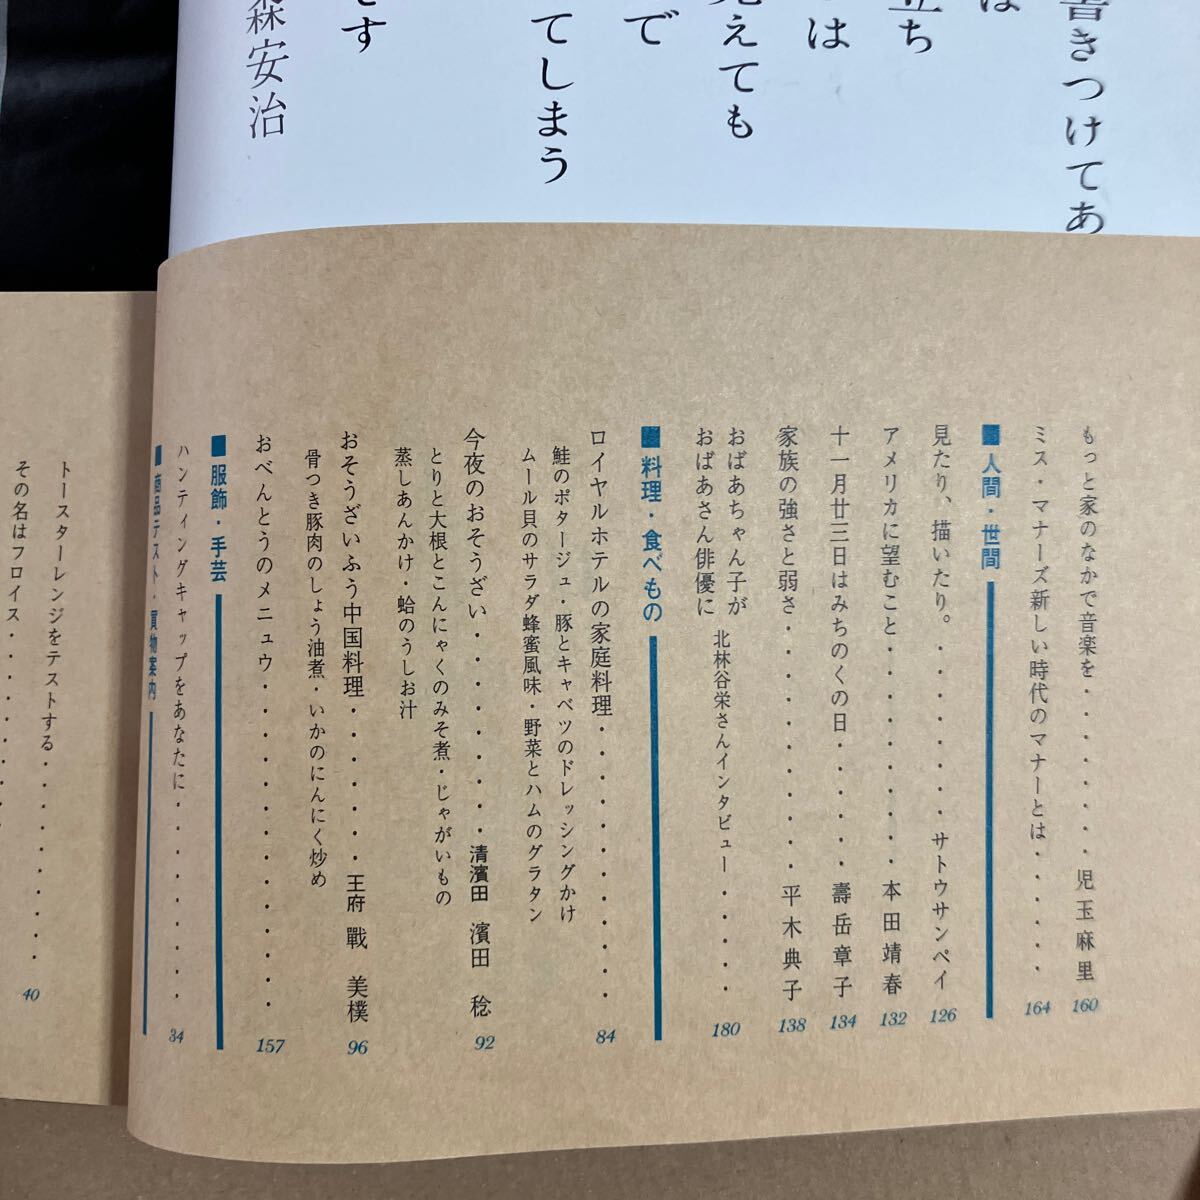 書きつけてあ
は
立ち
は
見えても
で
てしまう
す
森安治
もっと家のなかで音楽を・・・・・・・児玉麻里 160
ミス・マナーズ新しい時代のマナーとは・・・・・ 164
■人間・世間
見たり、描いたり。・・・・・・サトウサンペイ 126
アメリカに望むこと・・・・・・・・本田靖春 132
十一月廿三日はみちのくの日・・・・・壽岳章子 134
家族の強さと弱さ・・・・・・・・・平木典子 138
おばあちゃん子が
おばあさん俳優に 北林谷栄さんインタビュー・・・・・ 180
■料理・食べもの
ロイヤルホテルの家庭料理・・・・・・・・・・ 84
鮭のポタージュ・豚とキャベツのドレッシングかけ
ムール貝のサラダ蜂蜜風味・野菜とハムのグラタン
今夜のおそうざい・・・・・・・・清濱田 濱田 稔 92
とりと大根とこんにゃくのみそ煮・じゃがいもの
蒸しあんかけ・蛤のうしお汁
おそうざいふう中国料理・・・・・・王府 戰 美樸 96
骨つき豚肉のしょう油煮・いかのにんにく炒め
おべんとうのメニュウ・・・・・・・・・・・・ 157
■服飾・手芸
ハンティングキャップをあなたに・・・・・・・・ 34
■商品テスト・買物案内
トースターレンジをテストする・・・・・・・・ 40
その名はフロイス・・・・・・・・